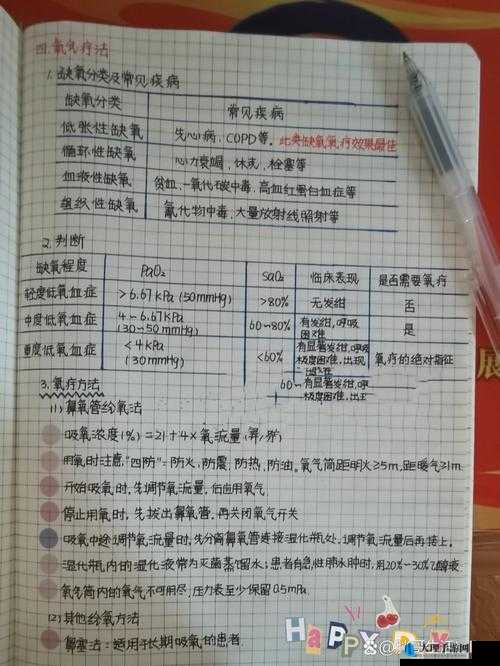 四.氧气疗法
1.缺氧分类及常见疾病
缺氧分类 常见疾病
低张性缺氧 先心病,COPD等。此类缺氧氧疗效果最佳
循环性缺氧 心力衰竭,休克,栓塞等
血液性缺氧 贫血,一氧化碳中毒,高血红蛋白血症等
组织性缺氧 氰化物中毒,大量放射线照射等
2.判断
缺氧程度 PaO₂ SaO₂ 临床表现 是否需要氧疗
轻度低氧血症 >6.67kPa(50mmHg) >80% 无发绀 否
中度低氧血症 4-6.67kPa(30~50mmHg) 60-80% 有发绀,呼吸困难 是
重度低氧血症 <4kPa(30mmHg) <60% 有显著发绀,呼吸极度困难,出现 氧疗的绝对指征
60- 有显著发绀,呼
极度困难,出现
3.氧疗方法
(1)鼻氧管给氧法
吸氧浓度(%)=21+4×氧流量(升/分)
用氧时注意,"四防"=防火,防震,防热,防油。氧气筒距明火≥5m,距暖气≥1m
开始吸氧时,先调节氧流量,后应用氧气
停止用氧时,先拔出鼻氧管,再关闭氧气开关
吸氧中途调节氧流量时,先分离鼻氧管连接湿化瓶处,调节氧流量后再接上。
湿化瓶内的湿化液常为灭菌蒸馏水;患者有急性肺水肿时,用20%~30%乙醇液
氧气筒内的氧气不可用尽.压力表至少保留0.5mPa.
(2)其他给氧方法
鼻塞法:适用于长期吸氧的患者.
HAPPY
大理手游网